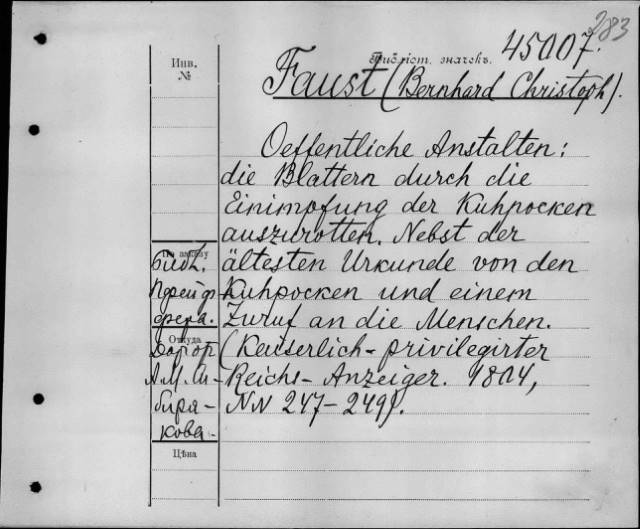 283
45007.
Библіот. значекъ.
Инв.
№
Faust (Bernhard Christoph).
Oeffentliche Anstalten:
die Blattern durch die
Einimpfung der Kuhpocken
auszurotten. Nebst der
ältesten Urkunde von den
Kuhpocken und einem
Zuruf an die Menschen.
(Kaiserlich-privilegirter
Reichs-Anzeiger. 1804,
NN 247-249).
Библ.
Пфейф-
фера.
Откуда
Д-ор
А.М. Ши-
бира-
кова.
Цѣна